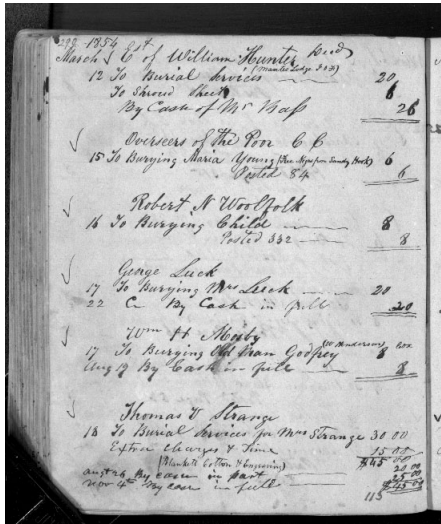 298 1854
March Est of William Hunter Decd
12 To Burial Services (Mantes Lodge I O F) 20
To Shroud Sheet 6
By Cash of Mr Bass 26
Overseers of the Poor C C
15 To Burying Maria Young from Sandy Hook) 6
Posted 84 6
Robert N Woolfolk
16 To Burying Child 8
Posted 332 8
George Luck
17 To Burying Mrs Luck 20
22 Cr By Cash in full 20
Wm H Mosby
17 To Burying Old Man Godfrey (W Henderson) Box 8
Aug 19 By Cash in full 8
Thomas V Strange
18 To Burial Services for Mrs Strange 30 00
Extra charges & Time 15 00
(Blankett Cotton & Engraving) $45 00
By cash in part 20 00
Nov 4th By cash in full 25 00
$45 00
115